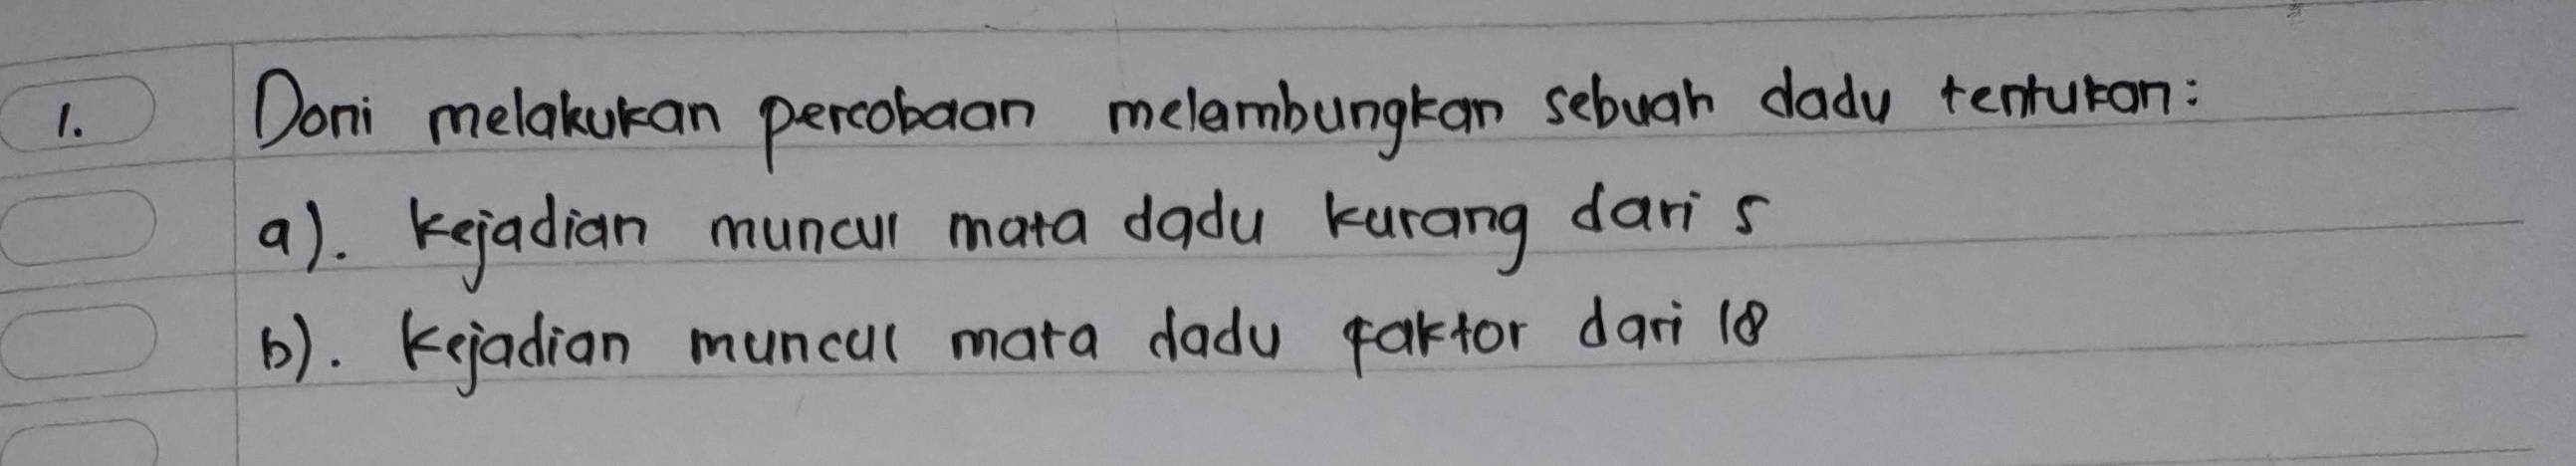 1. Doni melakukan percobaan melambungkan sebuah dadu tentukan:
a). kejadian muncul mata dadu kurang dari 5
b). kejadian muncul mata dadu faktor dari 18